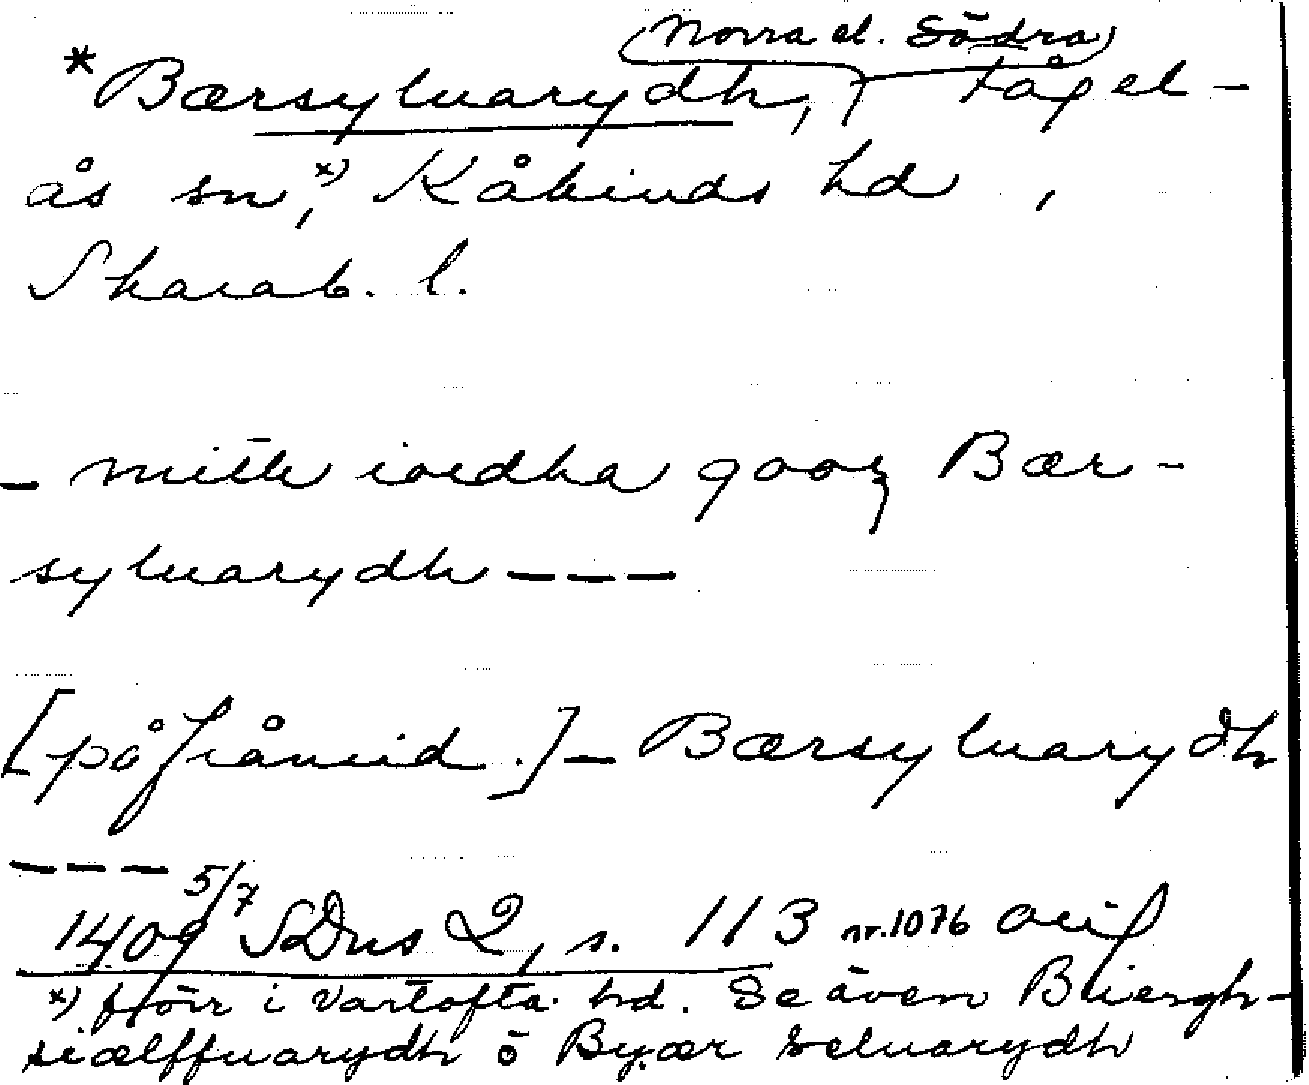 (Norra el. Södra)
*Bærsyluarydh, Fågel-
ås sn,x) Kåkinds hd,
Skarab. l.
- mith iordha gooz Bær-
syluarydh ---
[på frånsid.] - Bærsyluarydh
---
1409 5/7 SDns 2, s. 113 nr. 1076 orig
x) förr i Vartofta hd. Se även Biergh-
siælffuarydh o Byær seluarydh